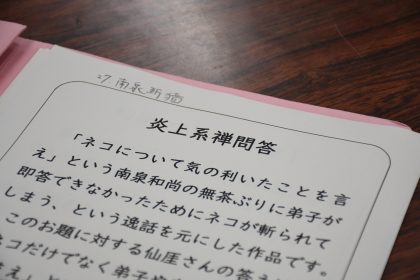 27 南泉斬猫
炎上系禅問答
「ネコについて気の利いたことを言
え」という南泉和尚の無茶ぶりに弟子が
即答できなかったためにネコが斬られて
しまう、という逸話を元にした作品です。
このお題に対する仙厓さんの答え
ネコだけでなく弟子